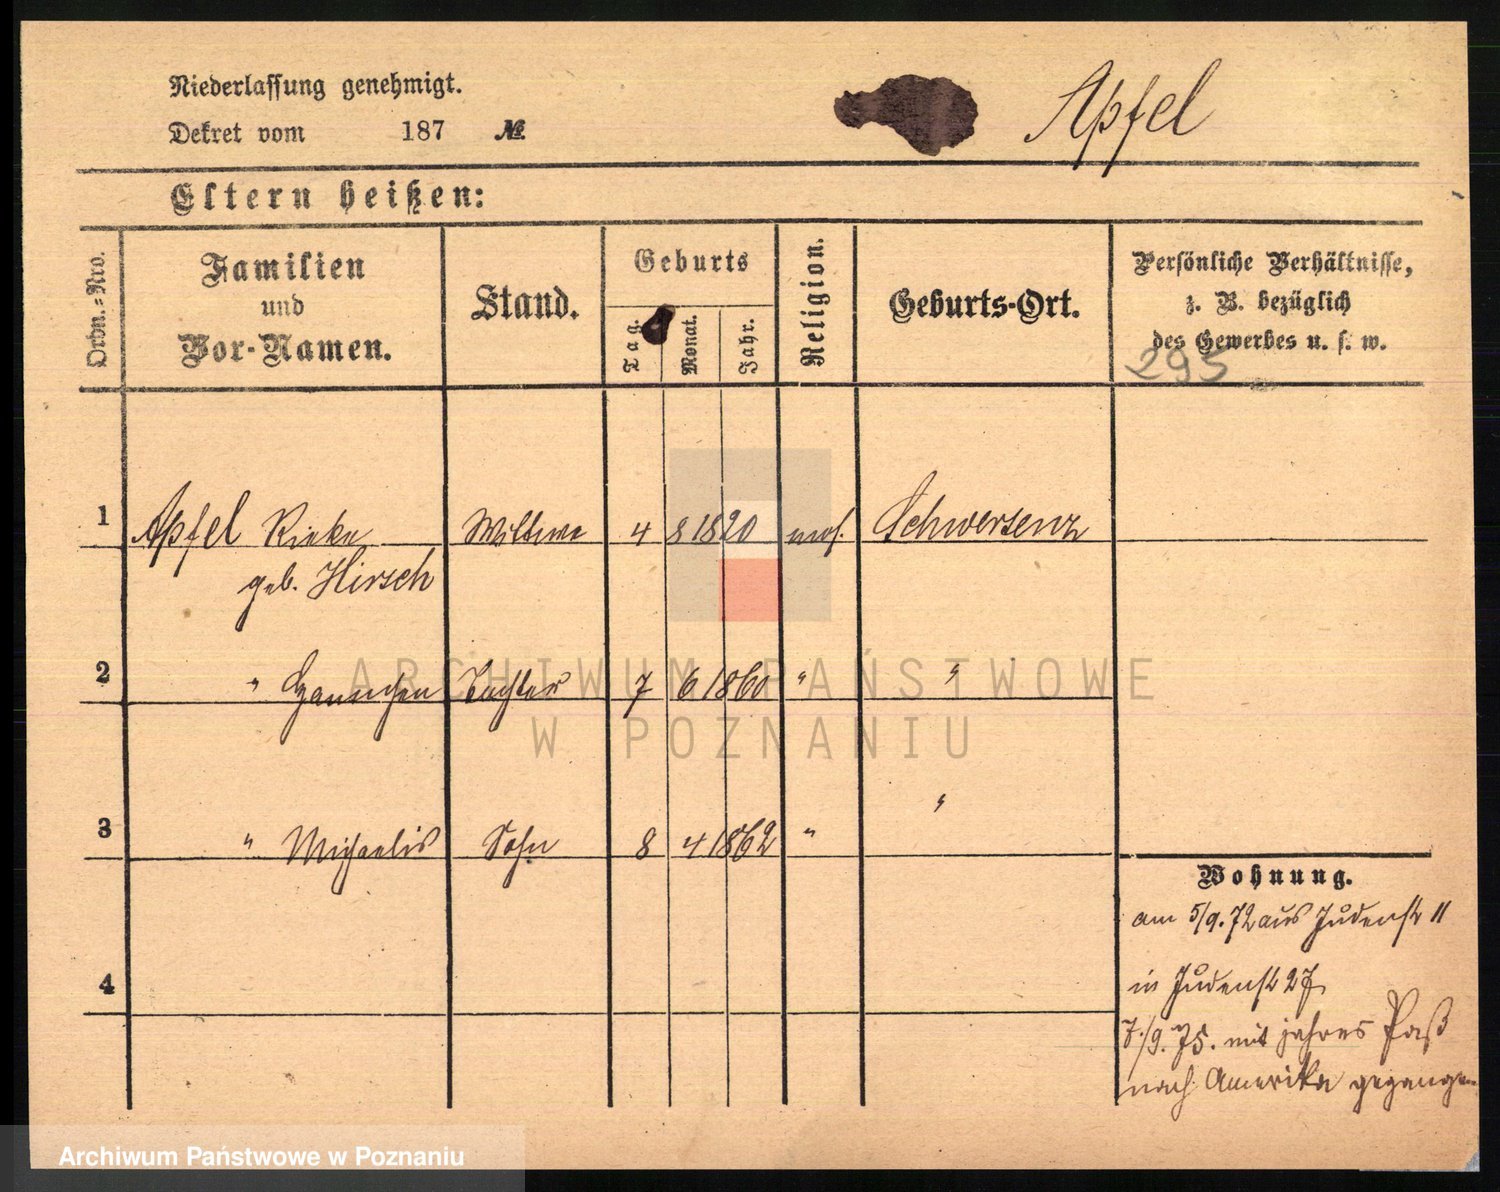 Niederlassung genehmigt.
Dekret vom 187 №
Apfel
Eltern heißen:
Ordn.=Nro.
Familien
und
Vor-Namen.
Stand.
Geburts
Tag.
Monat.
Jahr.
Religion.
Geburts-Ort.
Persönliche Verhältnisse,
z. B. bezüglich
des Gewerbes u. s. w.
295
1 Apfel Rieke Wittwe 4 8 1820 mos. Schwersenz
geb. Hirsch
2 " Hannchen Tochter 7 6 1860 " "
ARCHIWUM PAŃSTWOWE
W POZNANIU
3 " Michaelis Sohn 8 4 1862 " "
4
Wohnung.
am 5/9. 72 aus Judenstr 11
in Judenstr 27
7./9. 75. mit jahres Paß
nach Amerika gegangen
Archiwum Państwowe w Poznaniu